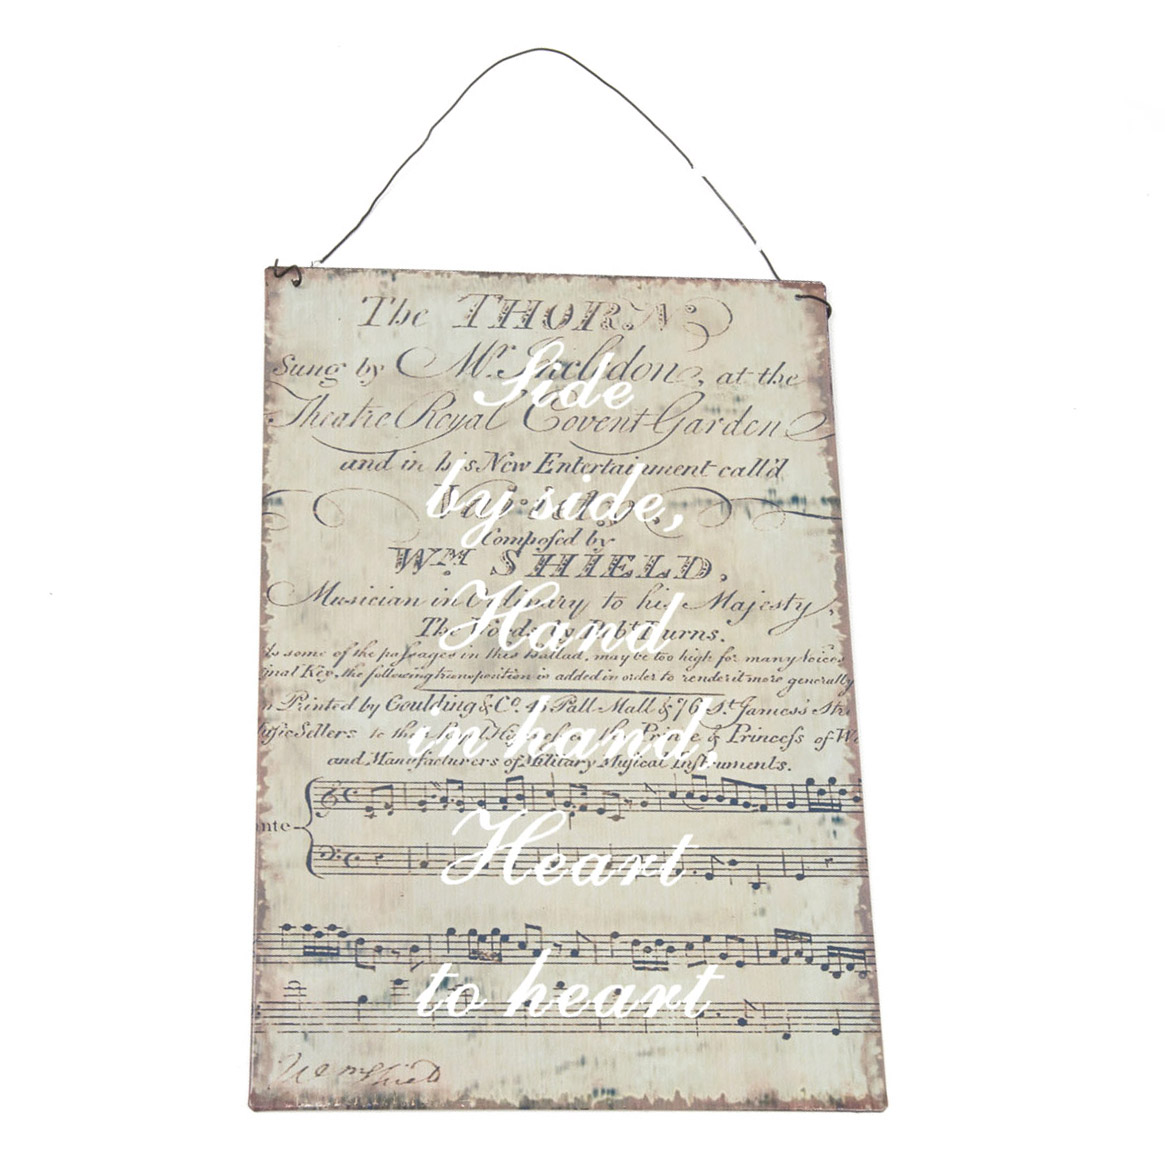 The THORN
Side
Sung by Mr. Incledon, at the
Theatre Royal Covent Garden
and in his New Entertainment call'd
by side,
Composed by
WM. SHIELD,
Musician in Ordinary to his Majesty,
Hand
The Words by Robt. Burns.
As some of the passages in this Ballad, may be too high for many Voices
inal Key, the following transposition is added in order to render it more generally
Printed by Goulding & Co. 45 Pall Mall & 76 St. James's Str
in hand,
usic Sellers to the Royal Prince & Princess of W
and Manufacturers of Military Musical Instruments.
nte
Heart
to heart
Wm Shield